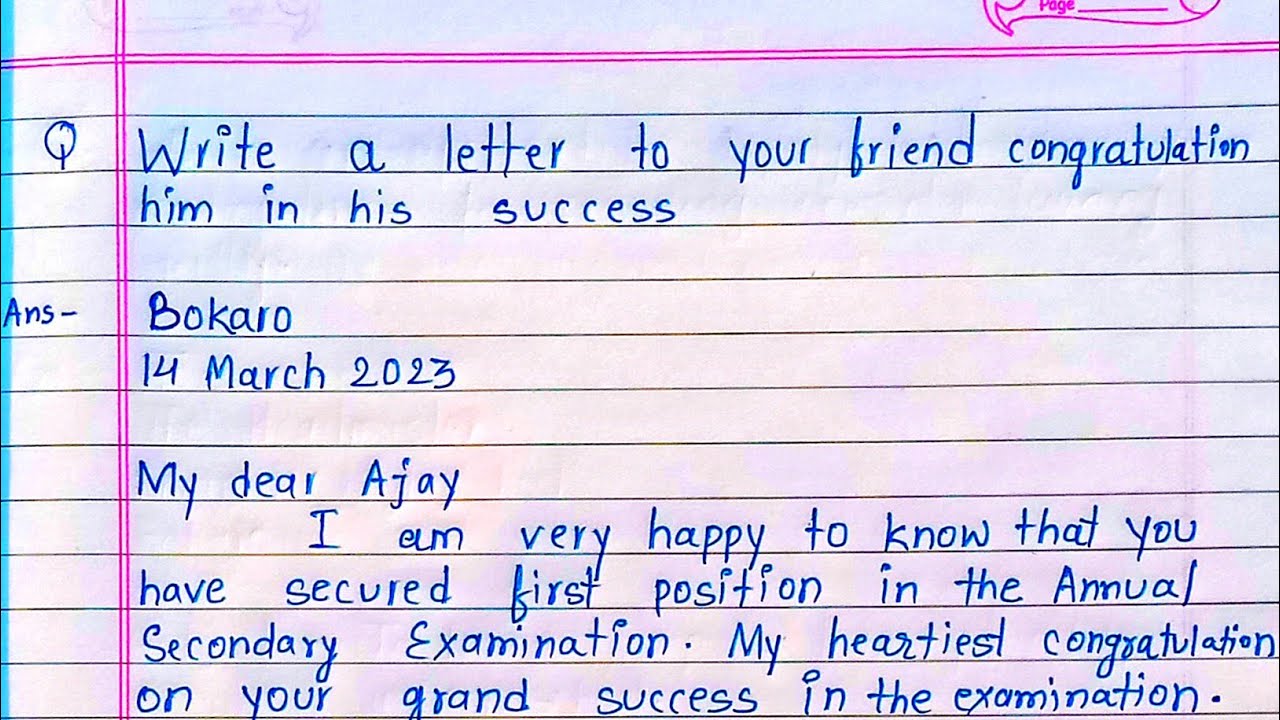 Page
Q Write a letter to your friend congratulation
him in his success
Ans- Bokaro
14 March 2023
My dear Ajay
I am very happy to know that you
have secured first position in the Annual
Secondary Examination. My heartiest congratulation
on your grand success in the examination.